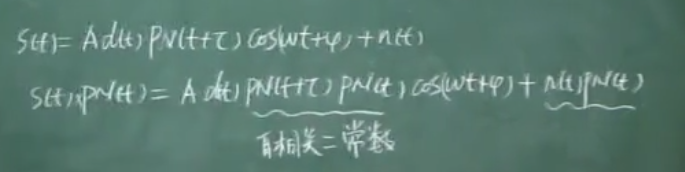 S(t)= A d(t) PN(t+τ) cos(wt+φ) + n(t)
S(t)·PN(t) = A d(t) PN(t+τ) PN(t) cos(wt+φ) + n(t)PN(t)
自相关=常数